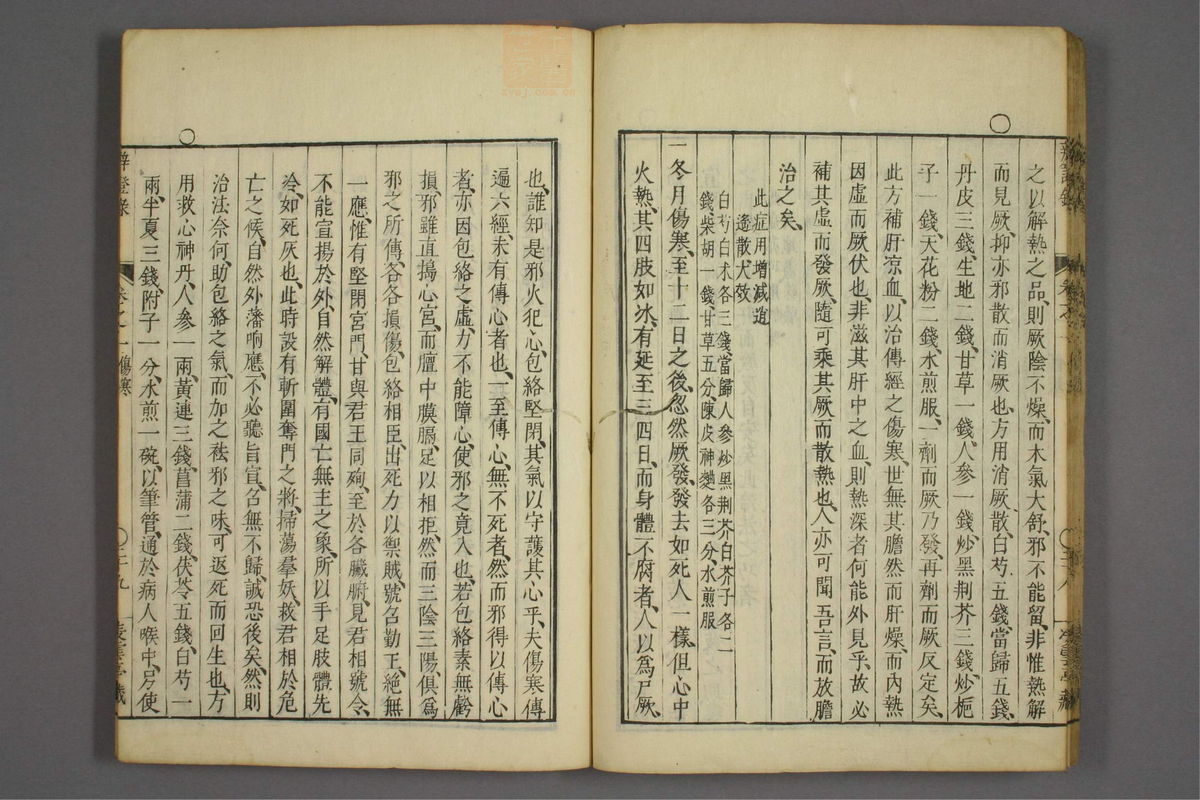 之以解熱之品、則厥陰不燥、而木氣大舒、邪不能留、非惟熱解
而見厥、抑亦邪散而消厥也、方用消厥散、白芍五錢、當歸五錢、
丹皮三錢、生地二錢、甘草一錢、人參一錢、炒黑荆芥三錢、炒梔
子一錢、天花粉二錢、水煎服、一劑而厥乃發、再劑而厥反定矣、
此方補肝凉血、以治傳經之傷寒、世無其膽、然而肝燥、而内熱
因虛而厥伏也、非滋其肝中之血、則熱深者何能外見乎、故必
補其虛、而發厥、隨可乘其厥而散熱也、人亦可聞吾言、而放膽
治之矣、
此症用增減逍
遙散大效
白芍白术各三錢、當歸人參炒黑荆芥白芥子各二
錢、柴胡一錢甘草五分陳皮神麯各三分、水煎服
一冬月傷寒、至十二日之後、忽然厥發、發去如死人一樣、但心中
火熱、其四肢如氷、有延至三四日、而身體不腐者、人以爲尸厥、
也、誰知是邪火犯心、包絡堅閉、其氣以守護其心乎、夫傷寒傳
遍六經、未有傳心者也、一至傳心、無不死者、然而邪得以傳心
者、亦因包絡之虛、力不能障心、使邪之竟入也、若包絡素無虧
損、邪雖直搗心宮、而膻中膜膈、足以相拒、然而三陰三陽、俱爲
邪之所傳、各各損傷、包絡相臣、出死力以禦賊、號召勤王、絕無
一應、惟有堅閉宮門、甘與君王同殉、至於各臟腑、見君相號令、
不能宣揚於外、自然解體、有國亡無主之象、所以手足肢體先
冷、如死灰也、此時設有斬圍奪門之將、掃蕩羣妖、救君相於危
亡之候、自然外藩响應、不必聽旨宣、召無不歸、誠恐後矣、然則
治法奈何、助包絡之氣、而加之祛邪之味、可返死而回生也、方
用救心神丹、人參一兩、黃連三錢、菖蒲二錢、茯苓五錢、白芍一
兩、半夏三錢、附子一分、水煎一碗、以筆管、通於病人喉中、另使
辨證錄 卷之一 傷寒 〇二十九